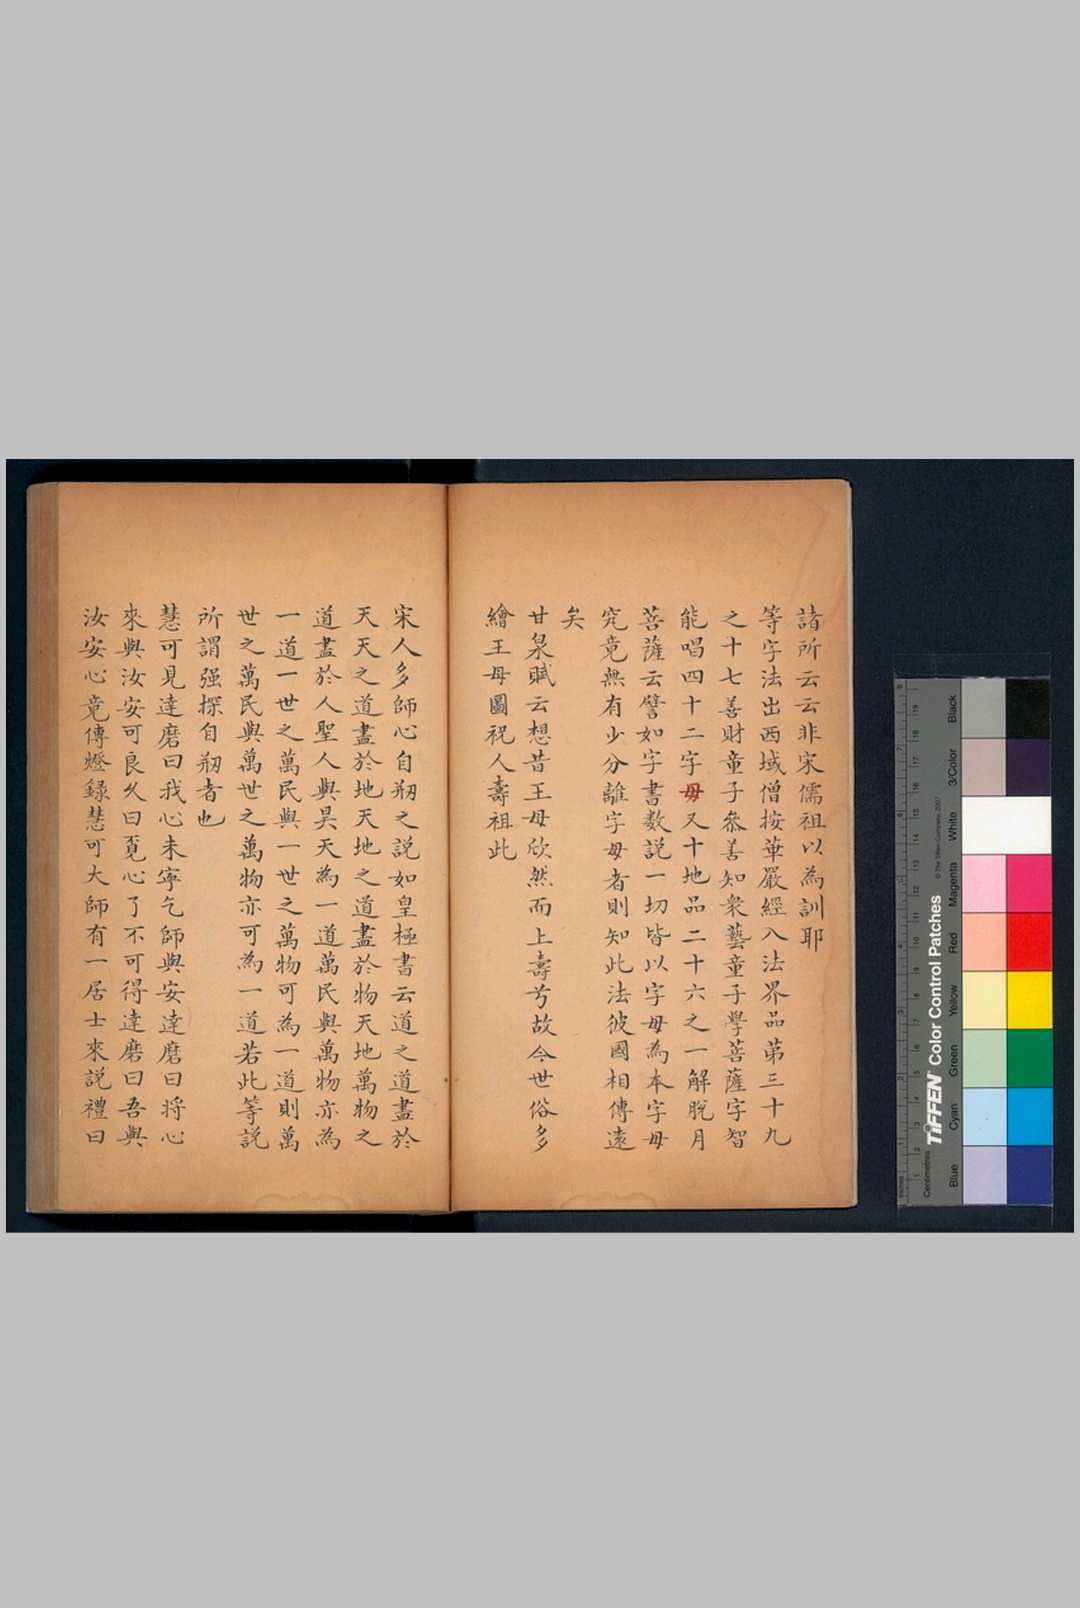 諸所云云非宋儒祖以為訓耶
等字法出西域僧按華嚴經入法界品第三十九
之十七善財童子叅善知衆藝童子學菩薩字智
能唱四十二字毋又十地品二十六之一解脫月
菩薩云譬如字書数説一切皆以字母為本字母
究竟無有少分離字母者則知此法彼國相傳遠
矣
甘泉賦云想昔王母欣然而上壽兮故今世俗多
繪王母圖祝人壽祖此
宋人多師心自剏之説如皇極書云道之道盡於
天天之道盡於地天地之道盡於物天地萬物之
道盡於人聖人與昊天為一道萬民與萬物亦為
一道一世之萬民與一世之萬物可為一道則萬
世之萬民與萬世之萬物亦可為一道若此等説
所謂强探自剏者也
慧可見達磨曰我心未寧乞師與安達磨曰将心
來與汝安可良久曰覓心了不可得達磨曰吾與
汝安心竟傳燈錄慧可大師有一居士來説禮曰
TIFFEN Color Control Patches
© The Tiffen Company, 2007
Centimetres
Inches
Blue
Cyan
Green
Yellow
Red
Magenta
White
3/Color
Black